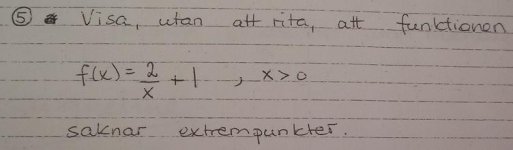 ⑤ Visa, utan att rita, att funktionen
f(x) = 2/x + 1 , x > 0
saknar extrempunkter.